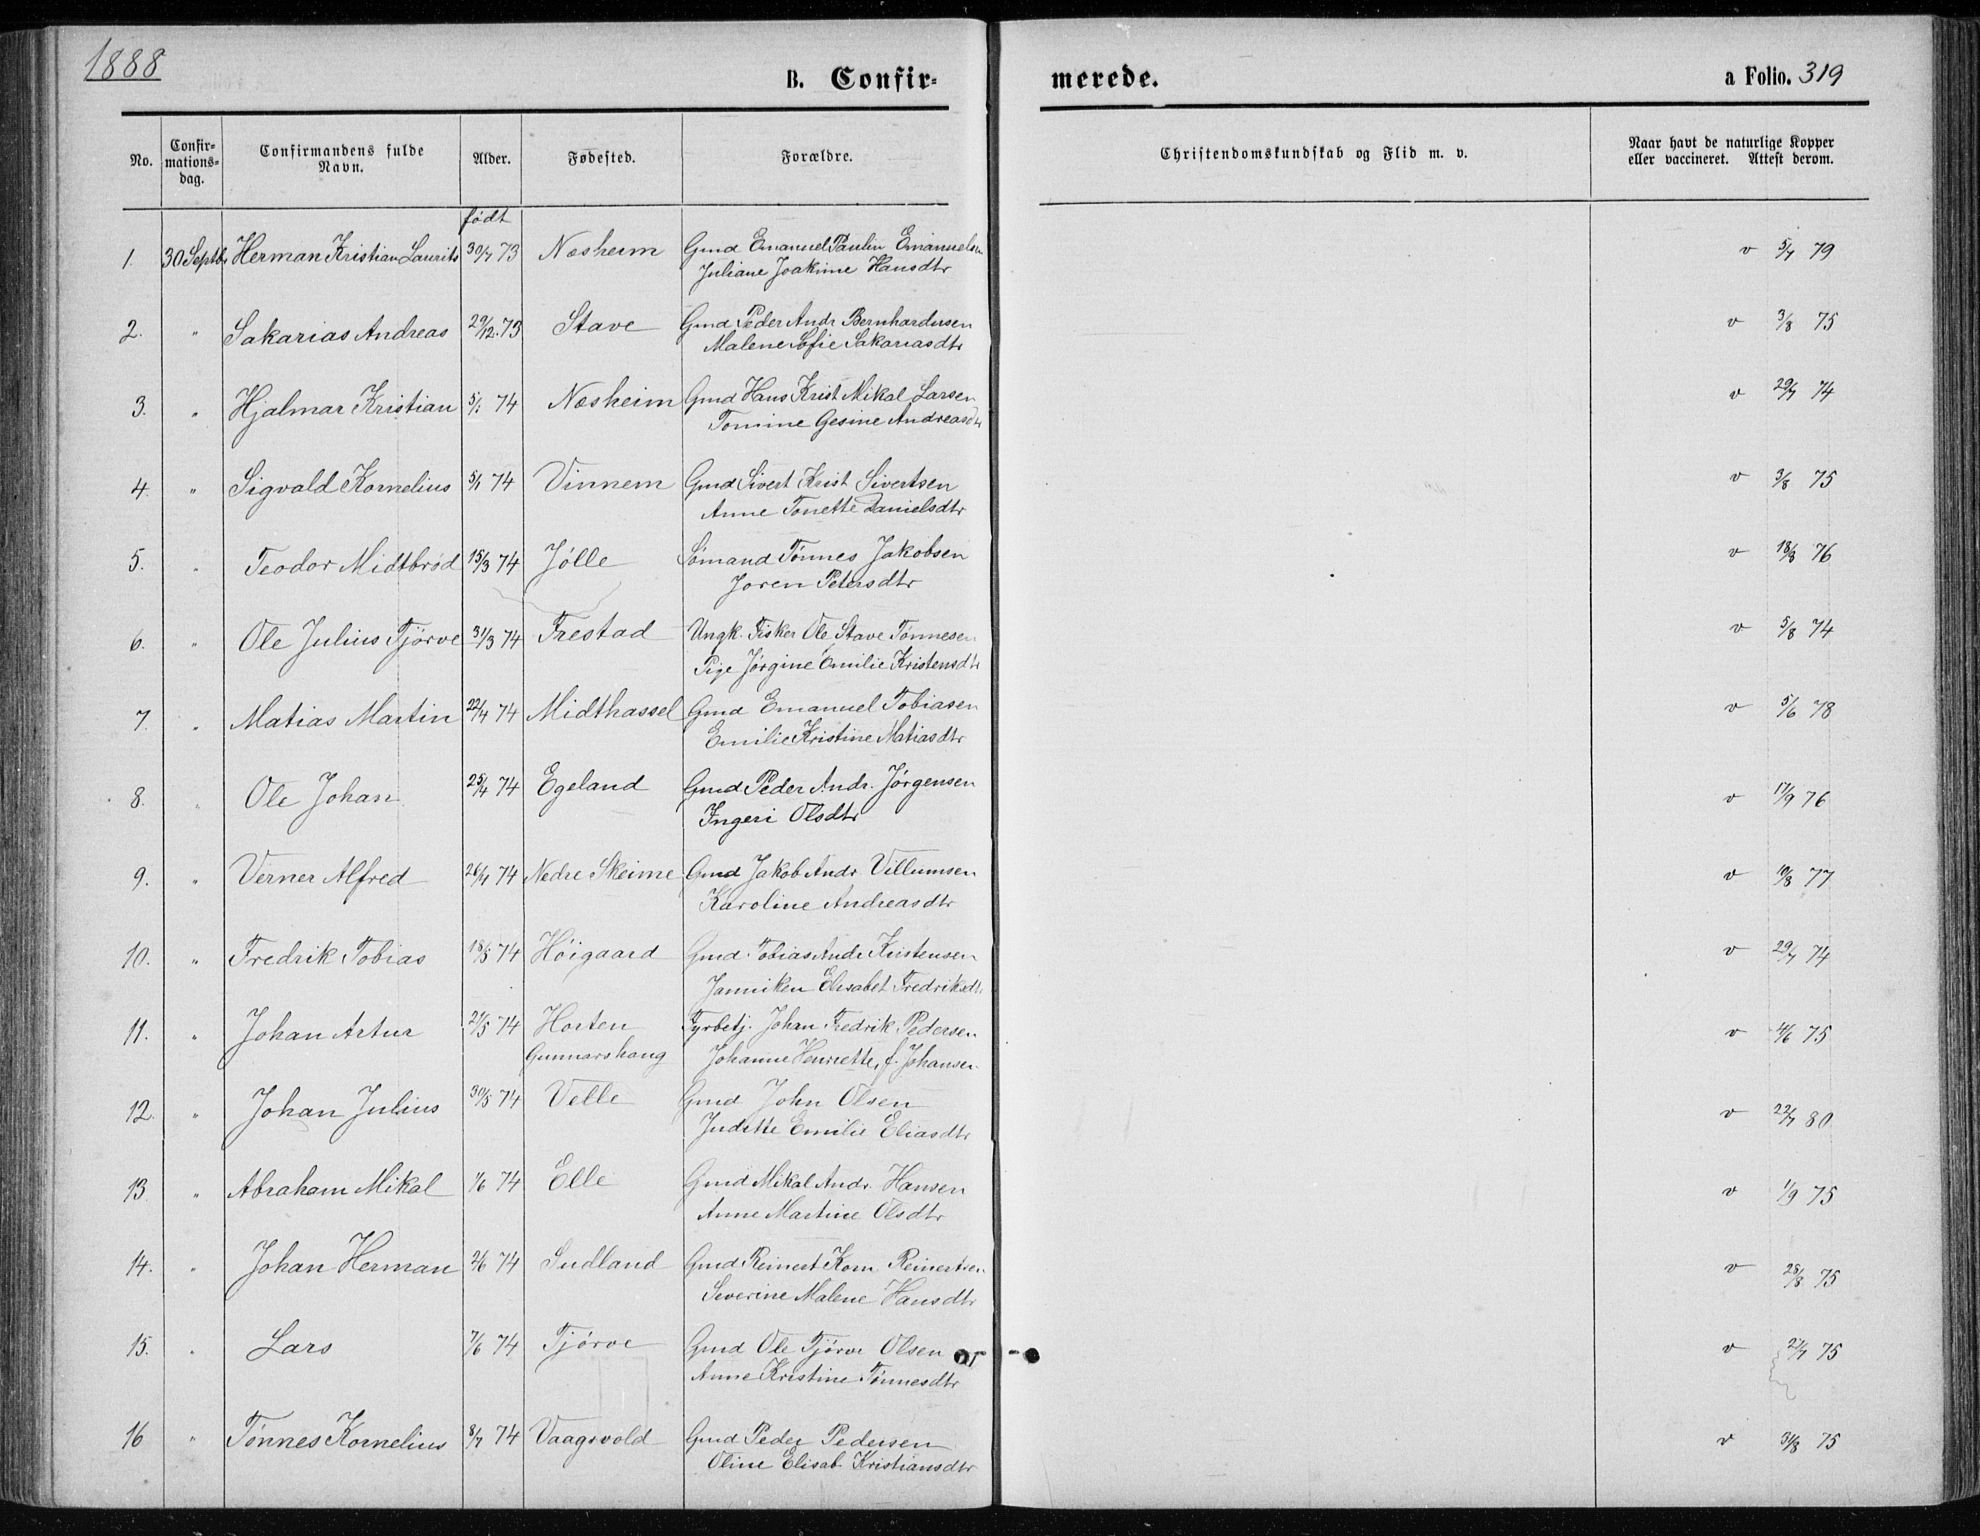 1888
B. Confir-
merede.
a Folio. 319
No.
Confir-
mations-
dag.
Confirmandens fulde
Navn.
Alder.
Fødested.
Forældre.
Christendomskundskab og Flid m. v.
Naar havt de naturlige Kopper
eller vaccineret. Attest derom.
født
1. 30 Septbr Herman Kristian Laurits 30/7 73 Næsheim Gmd Emanuel Paulin Emanuelsen v 5/7 79
Juliane Joakime Hansdtr
2. " Sakarias Andreas 29/12. 73 Stave Gmd Peder Andr Bernhardusen v 3/8 75
Malene Sofie Sakariasdtr
3. " Hjalmar Kristian 5/1 74 Næsheim Gmd Hans Krist Mikal Larsen v 29/7 74
Tomine Gesine Andreasdtr
4. " Sigvald Kornelius 5/1 74 Vinnem Gmd Sivert Krist Sivertsen v 3/8 75
Anne Tonette Danielsdtr
5. " Teodor Midtbrød 15/3 74 Jølle Sømand Tønnes Jakobsen v 18/8 76
Joren Petersdtr
6. " Ole Julius Tjørve 31/3 74 Frestad Ungk. Fisker Ole Stave Tønnesen v 5/8 74
Pige Jørgine Emilie Kristensdtr
7. " Matias Martin 22/4 74 Midthassel Gmd Emanuel Tobiasen v 5/6 78
Emilie Kristine Matiasdtr
8. " Ole Johan 25/4 74 Egeland Gmd Peder Andr. Jørgensen v 17/9 76
Ingeri Olsdtr
9. " Verner Alfred 26/4 74 Nedre Skeime Gmd Jakob Andr Villumsen v 10/8 77
Karoline Andreasdtr
10. " Fredrik Tobias 18/5 74 Høigaard Gmd Tobias Andr Kristensen v 29/7 74
Janniken Elisabet Fredriksdtr
11. " Johan Artur 21/5 74 Horten Fyrbetj. Johan Fredrik Pedersen v 4/6 75
Gunnarshaug Johanne Henriette, f. Johansen
12. " Johan Julius 30/5 74 Velle Gmd John Olsen v 22/7 80
Juditte Emilie Eliasdtr
13. " Abraham Mikal 1/6 74 Elle Gmd Mikal Andr. Hansen v 1/9 75
Anne Martine Olsdtr
14. " Johan Herman 2/6 74 Sudland Gmd Reinert Korn Reinertsen v 28/8 75
Severine Malene Hansdtr
15. " Lars 7/6 74 Tjørve Gmd Ole Tjørve Olsen v 27/7 75
Anne Kristine Tønnesdtr
16 " Tønnes Kornelius 8/7 74 Vaagsvold Gmd Peder Pedersen v 31/8 75
Oline Elisab. Kristiansdtr